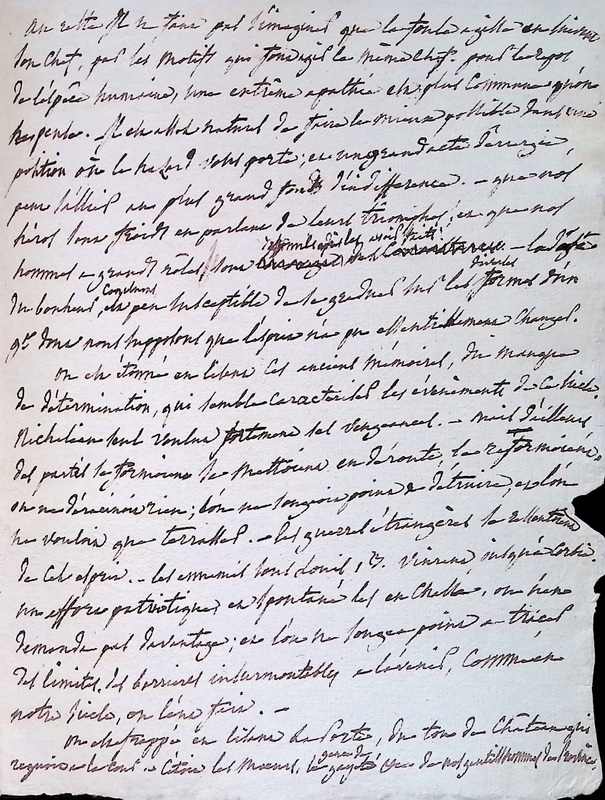 au reste Il ne faut pas s'imaginer que la foule agisse en suivant
son chef, par les motifs qui font agir le même chef. pour le repos
de l'espèce humaine, une extrême apathie est plus commune qu'on
ne pense. Il est assez naturel de faire le mieux possible dans une
position où le hazard vous porte; et un grand acte d'énergie,
peut s'allier au plus grand fonds d'indifférence. - que nos
héros sont froids en parlant de leurs triomphes; et que nos
hommes a grands rôles, sont
du bonheur, est peu susceptible de se graduer sur les formes d'un
nous supposons que l'esprit n'a pu essentiellement changer.
on est étonné en lisant ces anciens mémoires, du manque
de détermination, qui semble caractériser les événements de ce siècle.
Richelieu seul voulut fortement ses vengeances. - mais d'ailleurs
des partis se formoient se mettoient en déroute, se reformoient,
on ne déracinoit rien; l'on ne songeoit point à détruire, et l'on
ne vouloit que terrasser. - les guerres étrangères se ressentoient
de cet esprit. - les ennemis sous Louis 13. vinrent jusqu'à Corbie.
un effort patriotique, et spontané les en chassa, on n'en
demanda pas davantage; et l'on ne songea point a tracer
des limites, des barrières insurmontables a l'avenir, comme en
notre siècle, on l'eut fait. -
on est frappé en lisant la Porte, du ton de Château qui
regnoit a la cour a cette les mœurs, le genre de gayeté de nos gentilshommes de Province,